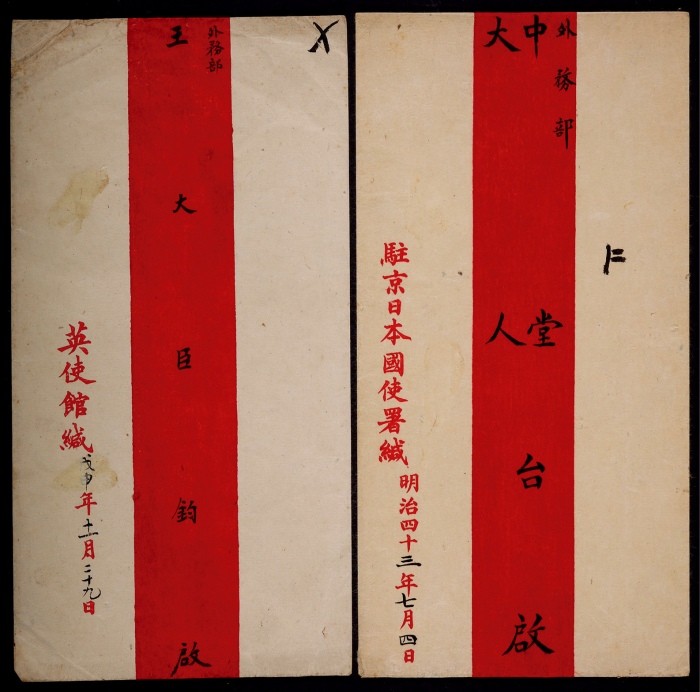 外務部
王大臣鈞啟
英使館緘
戊申年十一月二十九日
外務部
中堂
大人
台啟
駐京日本國使署緘
明治四十三年七月四日